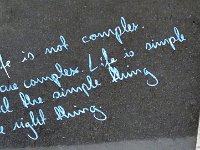 fe is not complex.
are complex. Life is simple
d the simple thing
e right thing